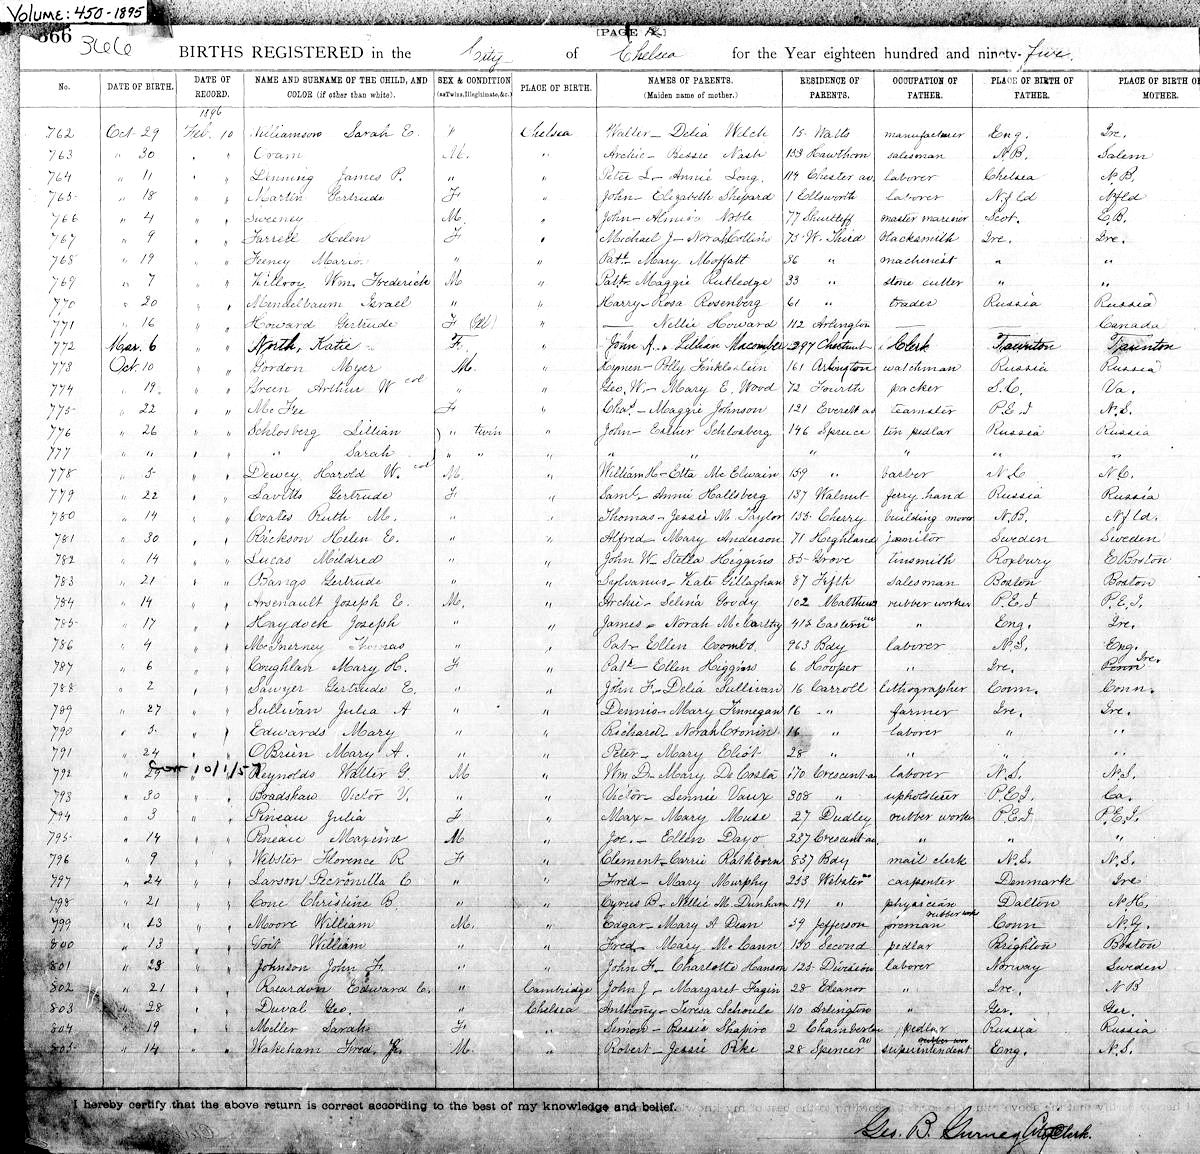 Volume: 450-1895
366 366 [PAGE A]
BIRTHS REGISTERED in the City of Chelsea for the Year eighteen hundred and ninety-Five.
No. DATE OF BIRTH. DATE OF RECORD. NAME AND SURNAME OF THE CHILD, AND COLOR (if other than white). SEX & CONDITION (as Twins, Illegitimate, &c.) PLACE OF BIRTH. NAMES OF PARENTS. (Maiden name of mother.) RESIDENCE OF PARENTS. OCCUPATION OF FATHER. PLACE OF BIRTH OF FATHER. PLACE OF BIRTH OF MOTHER.
1896
762 Oct 29 Feb. 10 Williamson Sarah E. " Chelsea Walter - Delia Welch 15 Watts manufacturer Eng. Ire.
763 " 30 " " Oram M. " Archie - Bessie Nash 153 Hawthorn salesman N.B. Salem
764 " 11 " " Denning James P. " " Peter L - Annie Long. 114 Chester av. laborer Chelsea N.B.
765 " 18 " " Martin Gertrude F " John - Elizabeth Shepard 1 Ellsworth laborer Nfld Nfld
766 " 4 " " Sweeney M. " John - Noble 77 Shurtleff master mariner Scot. C.B.
767 " 9 " " Farrell Helen F " Michael J - Norah Collins 75 W. Third blacksmith Ire. Ire.
768 " 19 " " Feeney Marion " " Patk Mary Moffatt 36 " machinist " "
769 " 7 " " Killroy Wm. Frederick M " Patk Maggie Rutledge 33 " stone cutter " "
770 " 20 " " Mendelbaum Israel " " Harry - Rosa Rosenberg 61 " trader Russia Russia
771 " 16 " " Howard Gertrude F " — Nellie Howard 112 Arlington — — Canada
772 Mar. 6 " " North, Katie F. " John A. - Lillian Macomber 297 Chestnut Clerk Taunton Taunton
773 Oct. 10 " " Gordon Myer M. " Hymen - Polly Finklestein 161 Arlington watchman Russia Russia
774 " 19 " " Green Arthur W col " " Geo. W. - Mary E. Wood 72 Fourth packer S.C. Va.
775 " 22 " " McFee F " Chas. - Maggie Johnson 121 Everett av teamster P.E.I N.S.
776 " 26 " " Schlosberg Lillian " twin " John - Esther Schlosberg 146 Spruce tin pedlar Russia Russia
777 " " " " " Sarah " " " " " " " " "
778 " 5 " " Dewey Harold W. col M. " William H - Etta McElwain 159 " barber N.C N.C.
779 " 22 " " Savitts Gertrude F " Saml. - Annie Hallsberg 137 Walnut ferry hand Russia Russia
780 " 14 " " Coates Ruth M. " " Thomas - Jessie M. Taylor 133 Cherry building mover N.B. Nfld.
781 " 30 " " Rickson Helen E. " " Alfred - Mary Anderson 71 Highland janitor Sweden Sweden
782 " 14 " " Lucas Mildred " " John W - Stella Higgins 85 Grove tinsmith Roxbury E Boston
783 " 21 " " Bangs Gertrude " " Sylvanus - Kate Gillaghan 87 Fifth salesman Boston Boston
784 " 14 " " Arsenault Joseph E. M. " Archie - Selina Goody 102 Matthews rubber worker P.E.I P.E.I.
785 " 17 " " Haydock Joseph " " James - Norah McCarthy 415 Eastern av " Eng. Ire.
786 " 4 " " McInerney Thomas " " Pat - Ellen Coombs 963 Bdy laborer N.S. Eng.
787 " 6 " " Coughlan Mary H. F " Patk - Ellen Higgins 6 Hooper " Ire. Penn Ire.
788 " 2 " " Sawyer Gertrude E. " " John F. - Delia Sullivan 16 Carroll lithographer Conn. Conn.
789 " 27 " " Sullivan Julia A " " Dennis - Mary Finnegan 16 " farmer Ire. Ire.
790 " 5 " " Edwards Mary " " Richard - Norah Cronin 16 " laborer " "
791 " 24 " " O'Brien Mary A. " " Peter - Mary Eliot 28 " " " "
10/1/57
792 " 29 " Reynolds Walter G. M " Wm D - Mary DeCosta 170 Crescent av laborer N.S. N.S.
793 " 30 " " Bradshaw Victor V. " " Victor - Jennie Vaux 308 " upholsterer P.E.I. Ca.
794 " 3 " " Pineau Julia F " Max - Mary Muse 27 Dudley rubber worker P.E.I P.E.I.
795 " 14 " " Pineau Maxime M " Joe. - Ellen Dayo 237 Crescent av " " "
796 " 9 " " Webster Florence R F " Clement - Carrie Rathborn 837 Bdy mail clerk N.S. N.S.
797 " 24 " " Larson Petronilla C " " Fred - Mary Murphy 253 Webster av carpenter Denmark Ire
798 " 21 " " Cone Christine B. " " Cyrus B - Nellie M. Dunham 191 " physician Dalton N.H.
799 " 13 " " Moore William M. " Edgar - Mary A Dean 59 Jefferson rubber work foreman Conn N.Y.
800 " 13 " " Voit William " " Fred - Mary McCann 150 Second pedlar Brighton Boston
801 " 23 " " Johnson John F. " " John F - Charlotte Hanson 125 Division laborer Norway Sweden
802 " 21 " " Reardon Edward C. " Cambridge John J - Margaret Fagin 28 Eleanor " Ire. N B
803 " 28 " " Duval Geo. " Chelsea Anthony - Teresa Schoule 110 Arlington " Ger. Ger.
804 " 19 " " Meller Sarah F " Simon - Bessie Shapiro 2 Chamberlain av pedlar Russia Russia
805 " 14 " " Wakeham Fred. Jr. M. " Robert - Jessie Pike 28 Spencer superintendent Eng. N.S.
I hereby certify that the above return is correct according to the best of my knowledge and belief.
Geo. B. Gurney City Clerk.